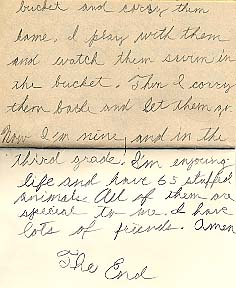 bucket and carry them
home. I play with them
and watch them swim in
the bucket. Then I carry
them back and let them go.
Now I'm nine, and in the
third grade. I'm enjoing
life and have 65 stuffed
animals. All of them are
special to me. I have
lots of friends. Amen
The End